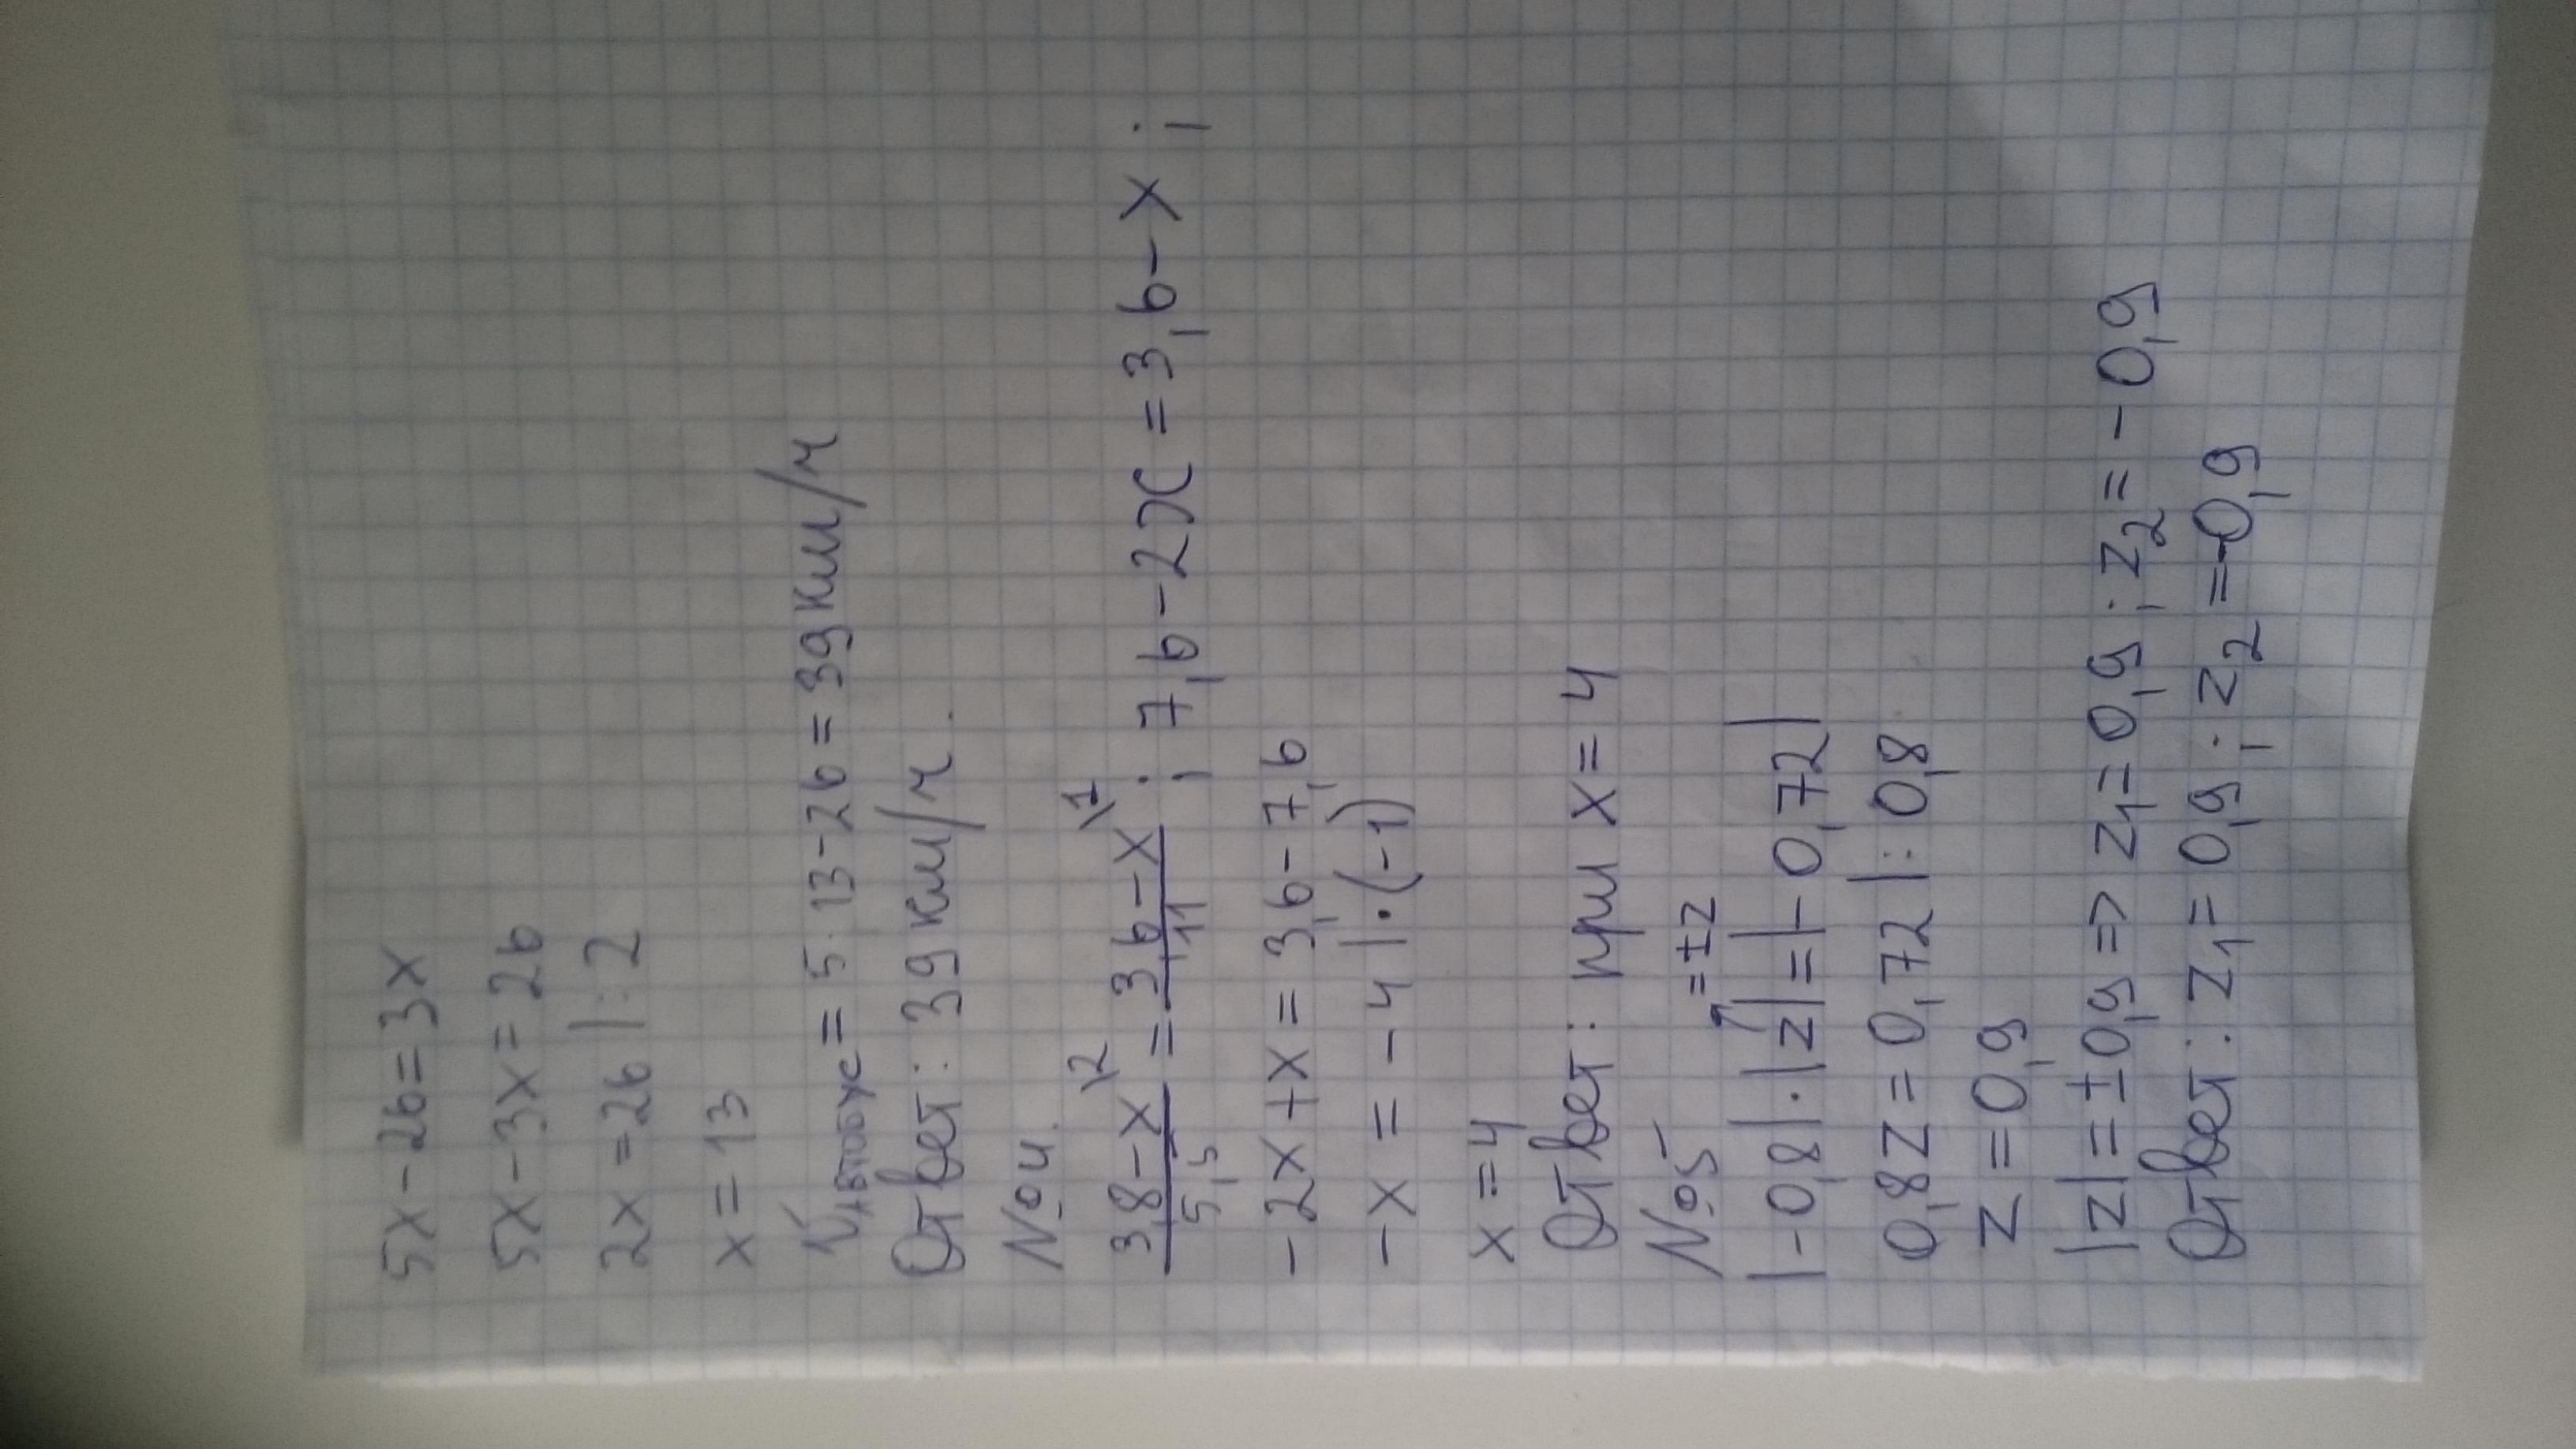 5x-26=3x
5x-3x=26
2x=26 |:2
x=13
Vавтобус=5·13-26=39км/ч
Ответ: 39 км/ч.
№4.
3,8-x\2/5,5 = 3,6-x\1/11 ; 7,6-2x=3,6-x ;
-2x+x=3,6-7,6
-x=-4 |·(-1)
x=4
Ответ: при x=4
№5
=±z
|-0,8|·|z|=|-0,72|
0,8z=0,72 |:0,8
z=0,9
|z|=±0,9=> z₁=0,9 ; z₂=-0,9
Ответ: z₁=0,9 ; z₂=-0,9